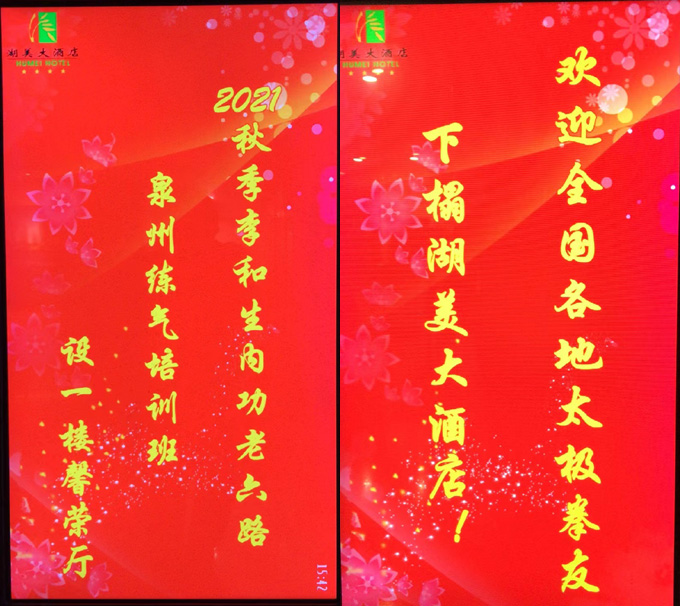 湖美大酒店
HUMEI HOTEL
2021秋季李和生内功老六路
泉州练气培训班
设一楼馨荣厅
15:42
湖美大酒店
HUMEI HOTEL
欢迎全国各地太极拳友
下榻湖美大酒店！